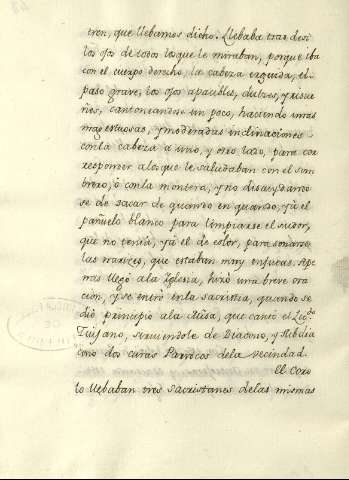 tren, que llebamos dicho. Llebaba tras de si
los ojos de todos los que le miraban, porque iba
con el cuerpo derecho, la cabeza erguida, el
paso grave, los ojos apacibles, dulzes, y risue
ños, contoneandose un poco, haciendo unas
magestuosas, y moderadas inclinaciones
con la cabeza à uno, y otro lado, para cor
responder à los que le saludaban con el som
brero, ò con la montera, y no descuydando
se de sacar de quando en quando, yà el
pañuelo blanco para limpiarse el sudor,
que no tenia, yà el de color, para sonarse
las narizes, que estaban muy enjutas. Ape
nas llegò à la Iglesia, hizo una breve ora
cion, y se entrò en la sacristia, quando se
diò principio à la Misa, que cantò el Lic.do
Quijano, sirviendole de Diacono, y Subdia
cono dos curas Parrocos de la vecindad.
El Coro
lo llebaban tres sacristanes de las mismas